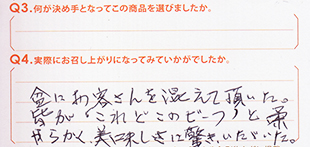 Q3.何が決め手となってこの商品を選びましたか。
Q4.実際にお召し上がりになってみていかがでしたか。
盆にお客さんを混えて頂いた。
皆が「これどこのビーフ」と柔
からかく、美味しさに驚きいただいた。